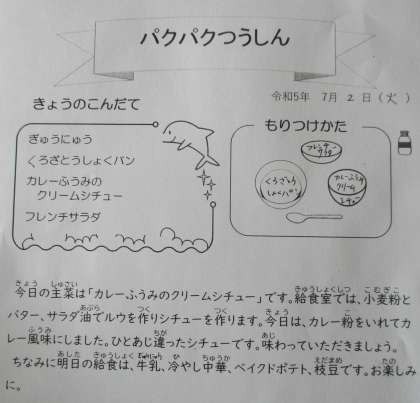 パクパクつうしん
令和5年 7月 2日(火)
きょうのこんだて
ぎゅうにゅう
くろざとうしょくパン
カレーふうみの
クリームシチュー
フレンチサラダ
もりつけかた
フレンチー
サラダ
くろざとう
しょくパン
カレーふうみ
クリーム
シチュー
今日の主菜は「カレーふうみのクリームシチュー」です。給食室では、小麦粉と
バター、サラダ油でルウを作りシチューを作ります。今日は、カレー粉をいれてカ
レー風味にしました。ひとあじ違ったシチューです。味わっていただきましょう。
ちなみに明日の給食は、牛乳、冷やし中華、ベイクドポテト、枝豆です。お楽しみ
に。